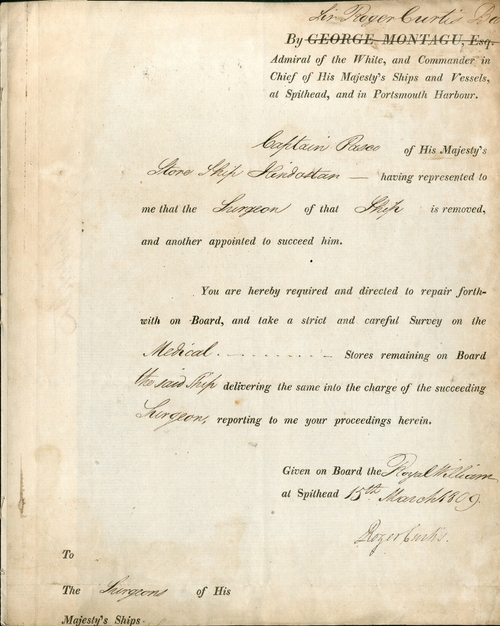 Sir Roger Curtis
By GEORGE MONTAGU, Esq.
Admiral of the White, and Commander in
Chief of His Majesty's Ships and Vessels,
at Spithead, and in Portsmouth Harbour.
Captain Pasco of His Majesty's
Store Ship Hindostan — having represented to
me that the Surgeon of that Ship is removed,
and another appointed to succeed him.
You are hereby required and directed to repair forth-
with on Board, and take a strict and careful Survey on the
Medical . - - - - - - - - Stores remaining on Board
the said Ship delivering the same into the charge of the succeeding
Surgeon, reporting to me your proceedings herein.
Given on Board the Royal William
at Spithead 15th March 1809.
Roger Curtis.
To
The Surgeons of His
Majesty's Ships